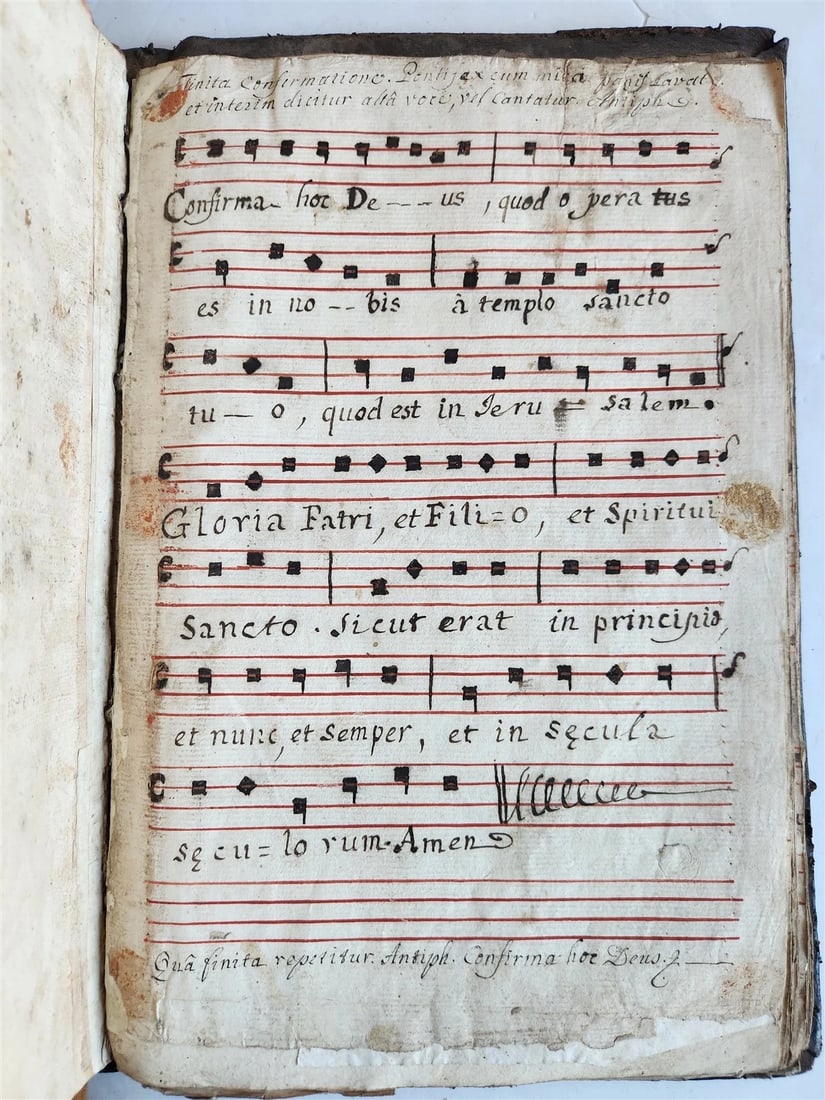 Finita Confirmatione. Pontifex cum mica panis lavat
et interim dicitur altâ voce, vel Cantatur Antiph.
Confirma hoc De---us, quod opera tus
es in no--bis à templo sancto
tu—o, quod est in Jeru = salem.
Gloria Patri, et Fili=o, et Spiritui
Sancto. Sicut erat in principio,
et nunc, et semper, et in sęcula
sęcu=lo rum. Amen
Quâ finita repetitur. Antiph. Confirma hoc Deus.